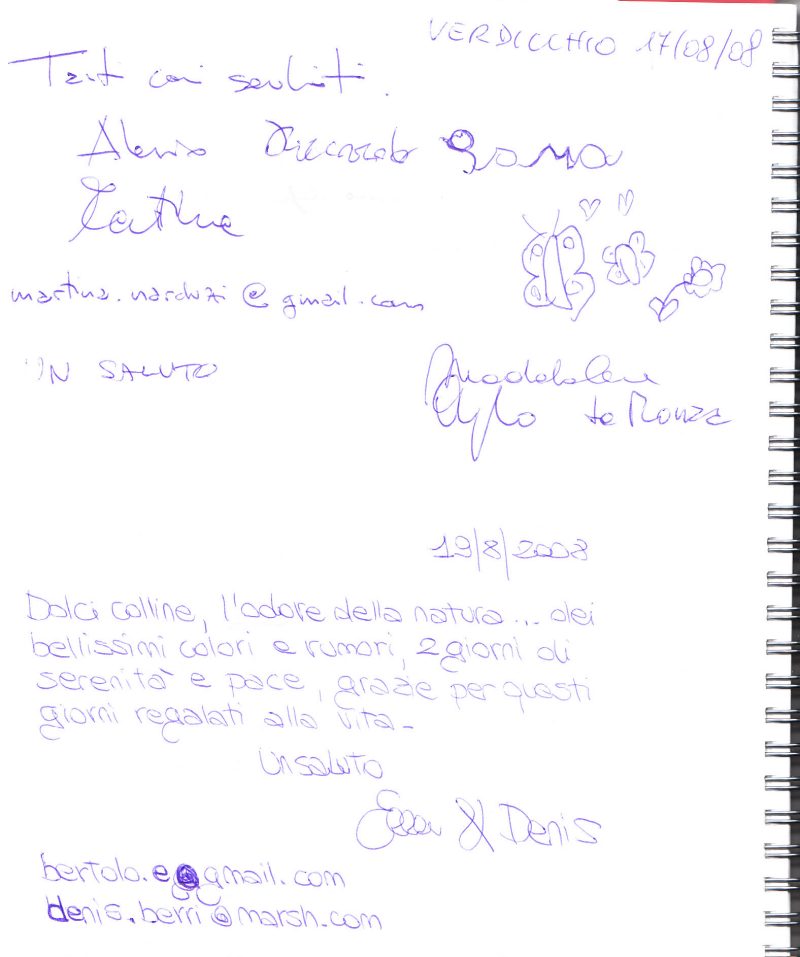 VERDICCHIO 17/08/08
Tanti cari saluti.
Alessio Riccardo
martina.narduzi@gmail.com
UN SALUTO
Maddalena
da Monza
19/8/2008
Dolci colline, l'odore della natura... dei
bellissimi colori e rumori, 2 giorni di
serenità e pace, grazie per questi
giorni regalati alla vita-
Un saluto
& Denis
bertolo.e@gmail.com
denis.berri@marsh.com